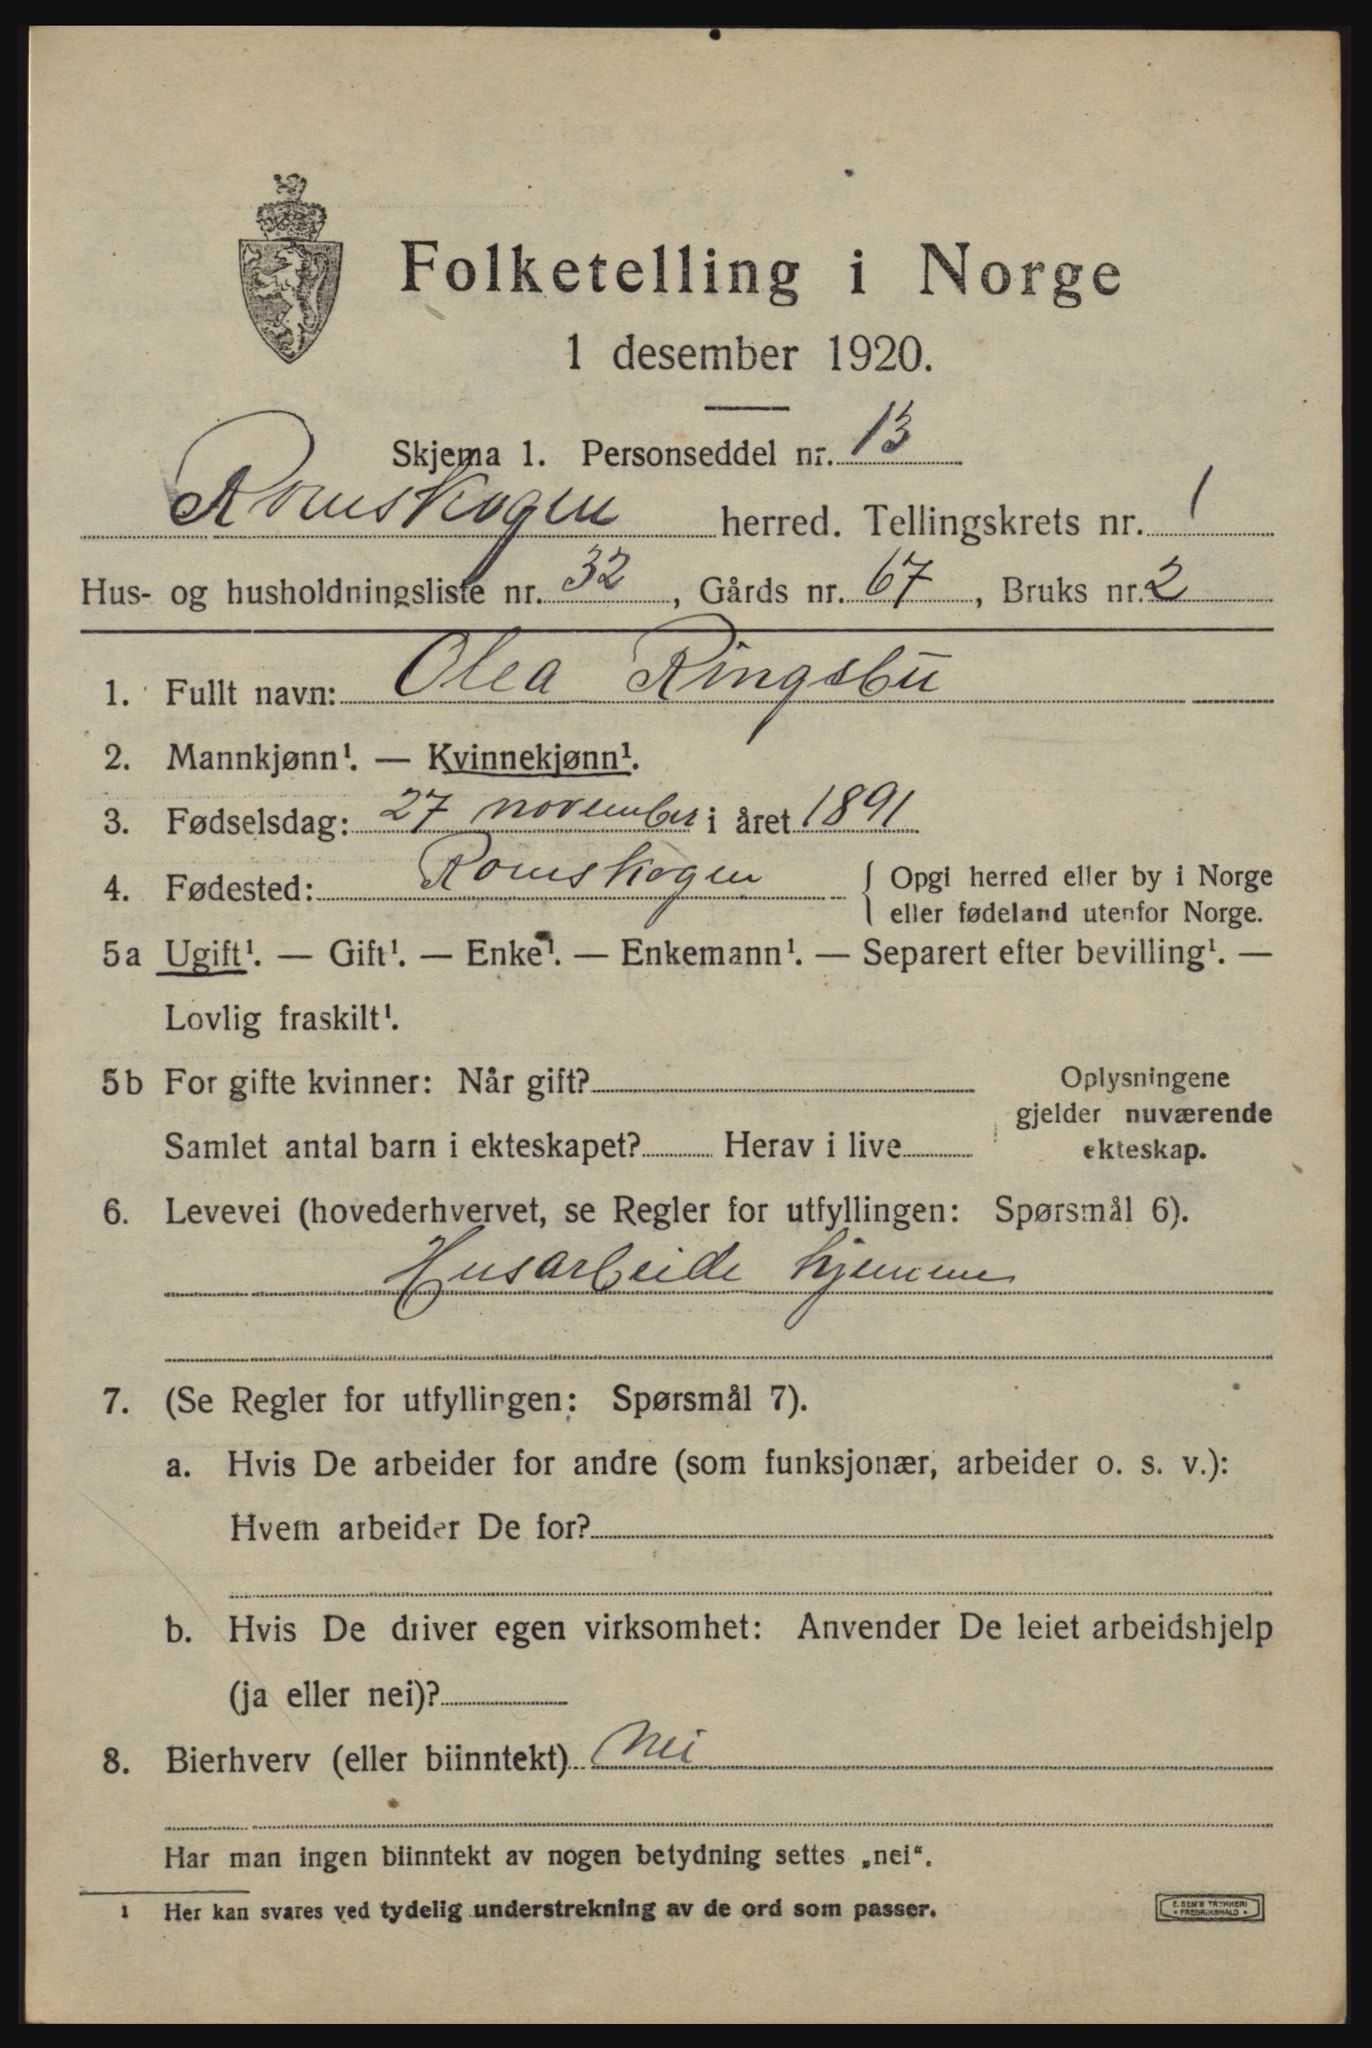 Folketelling i Norge
1 desember 1920.
Skjema 1. Personseddel nr. 13
Romskogen herred. Tellingskrets nr. 1
Hus- og husholdningsliste nr. 32, Gårds nr. 67, Bruks nr. 2
1. Fullt navn: Olea Ringsbu
2. Mannkjønn¹. — Kvinnekjønn¹.
3. Fødselsdag: 27 november i året 1891
4. Fødested: Romskogen { Opgi herred eller by i Norge
eller fødeland utenfor Norge.
5a Ugift¹. — Gift¹. — Enke¹. — Enkemann¹. — Separert efter bevilling¹. —
Lovlig fraskilt¹.
5b For gifte kvinner: Når gift?
Samlet antal barn i ekteskapet? Herav i live
Oplysningene
gjelder nuværende
ekteskap.
6. Levevei (hovederhvervet, se Regler for utfyllingen: Spørsmål 6).
Husarbeide hjemme
7. (Se Regler for utfyllingen: Spørsmål 7).
a. Hvis De arbeider for andre (som funksjonær, arbeider o. s. v.):
Hvem arbeider De for?
b. Hvis De driver egen virksomhet: Anvender De leiet arbeidshjelp
(ja eller nei)?
8. Bierhverv (eller biinntekt) Nei
Har man ingen biinntekt av nogen betydning settes „nei“.
1 Her kan svares ved tydelig understrekning av de ord som passer.
E. SEM'S TRYKKERI
• FREDRIKSHALD •